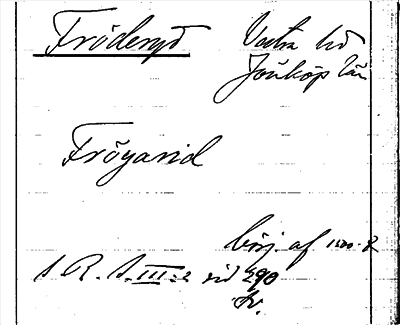 Fröderyd Västra hd
Jönköp. län
Fröyarid
börj. af 1500-t.
S. R. S. III:2 sid 290